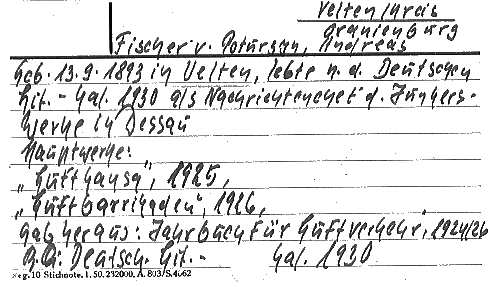 Velten Kreis
Oranienburg
Fischer v. Poturzyn, Andreas
Geb. 13.9.1893 in Velten, lebte n. d. Deutschen
Lit.-Kal. 1930 als Nachrichtenchef d. Junkers-
werke in Dessau
Hauptwerke:
„Lufthansa", 1925,
„Luftbarrikaden", 1926,
Gab heraus: Jahrbuch für Luftverkehr, 1924/26
Deutsch. Lit.- Kal. 1930
Reg. 10 Stichnote. 1. 50. 232000. A. 803/S. 4062